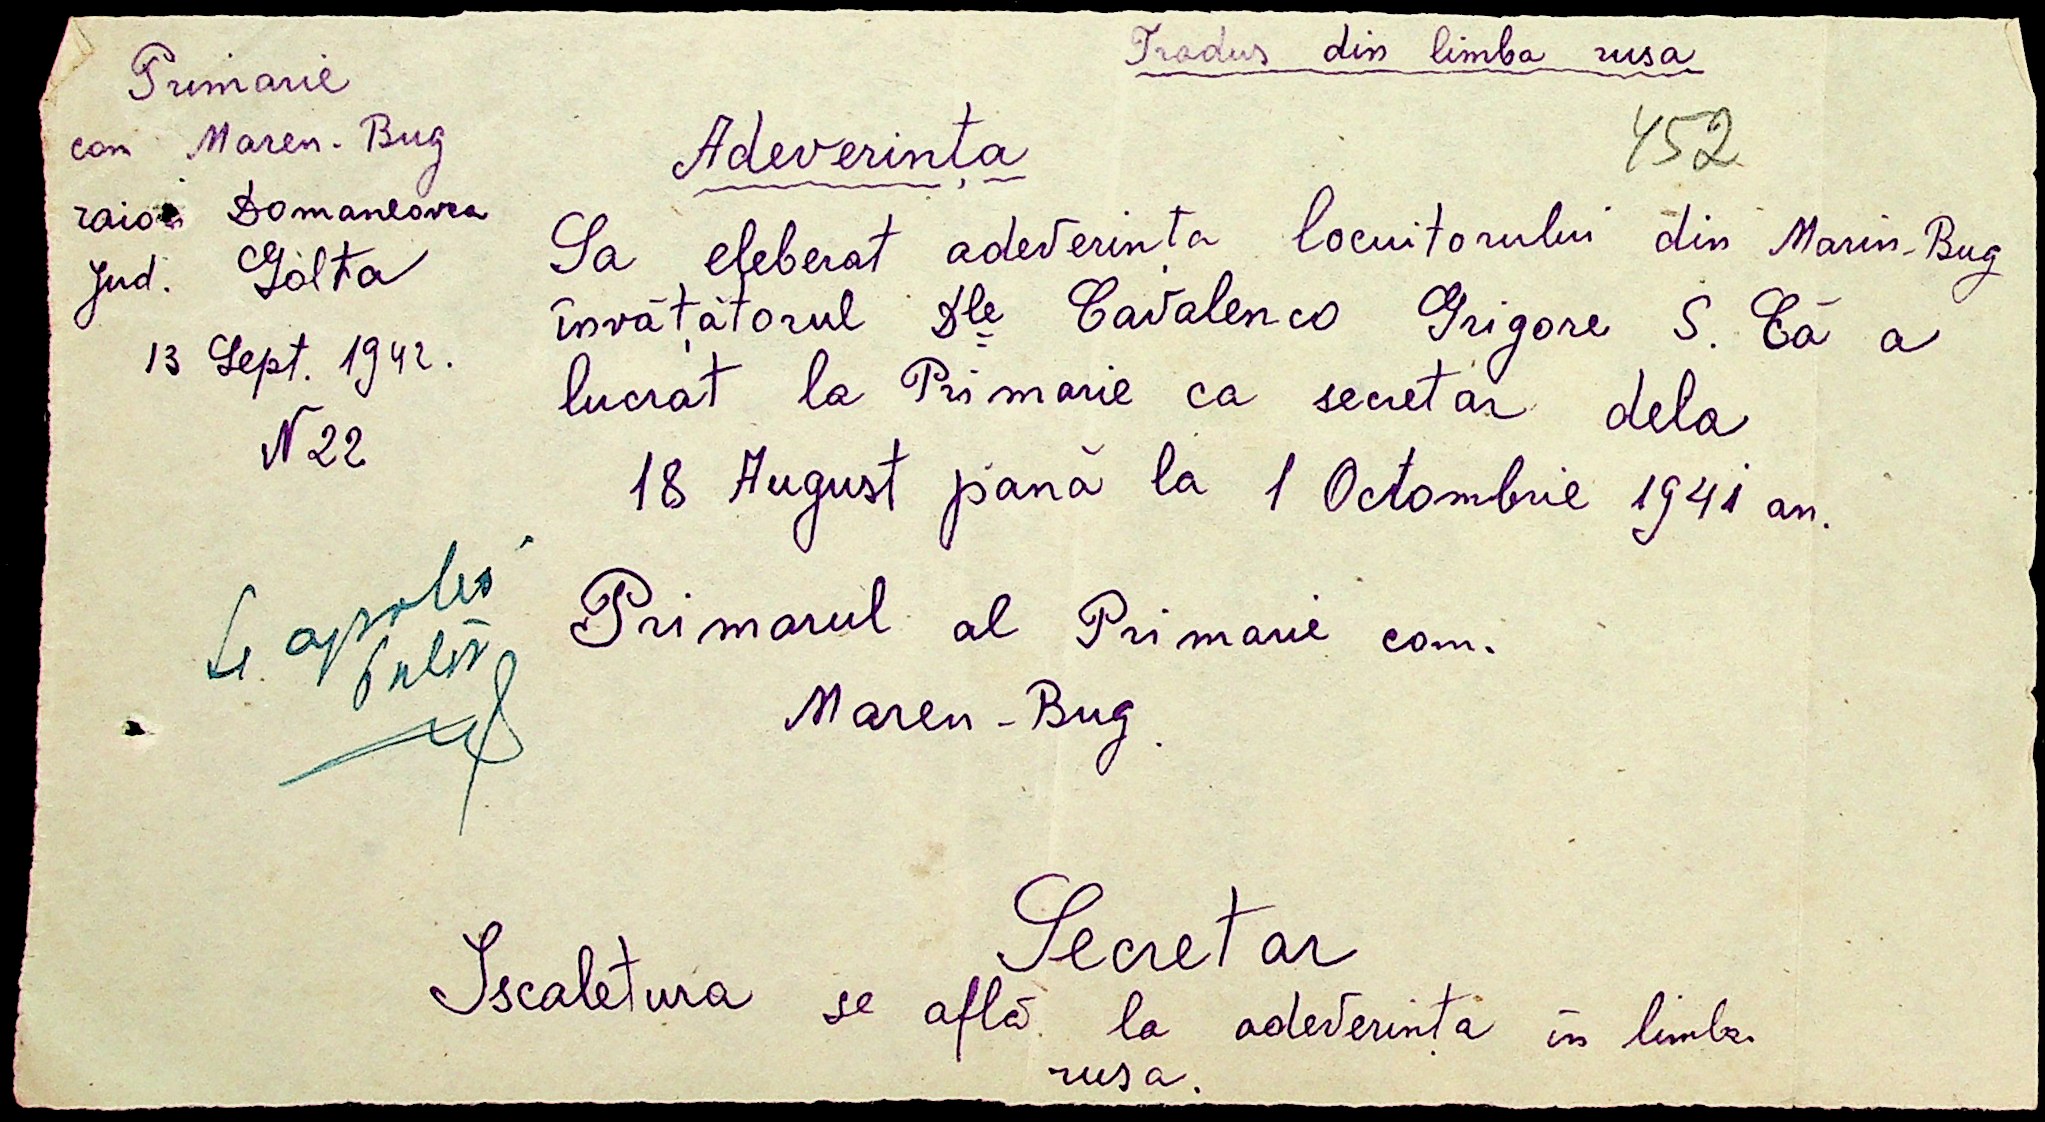 Tradus din limba rusa
Primarie
com Maren-Bug
raion Domaneovca
Jud. Golta
13 Sept. 1942.
N 22
452
Adeverința
Sa eleberat adeverința locuitorului din Marin-Bug
învățătorul Dle Cavalenco Grigore S. Că a
lucrat la Primarie ca secretar dela
18 August pănă la 1 Octombrie 1941 an.
Primarul al Primarie com.
Maren-Bug.
Secretar
Iscaletura se află la adeverința în limba
rusa.